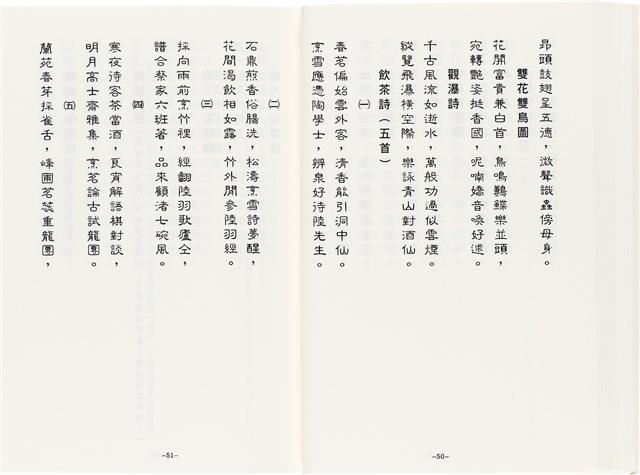 昂頭鼓翅呈五德，微聲識蟲傍母身。
雙花雙鳥圖
花開富貴兼白首，鳥鳴鶼鰈樂並頭，
宛轉艷姿挺香國，呢喃嬌音喚好逑。
觀瀑詩
千古風流如逝水，萬般功過似雲煙。
縱覽飛瀑橫空際，樂詠青山對酒仙。
飲茶詩（五首）
㈠
春茗偏始雲外客，清香能引洞中仙。
烹雪應憑陶學士，辨泉好待陸先生。
-50-
㈡
石鼎煎香俗腸洗，松濤烹雪詩夢醒，
花間渴飲相如露，竹外閒參陸羽經。
㈢
採向雨前烹竹裡，經翻陸羽歌盧仝，
譜合蔡家六班著，品來顧渚七碗風。
㈣
寒夜待客茶當酒，夏宵解語棋對談，
明月高士齋雅集，烹茗論古試龍團。
㈤
蘭苑春芽採雀舌，峰圃茗蕊重龍團，
-51-